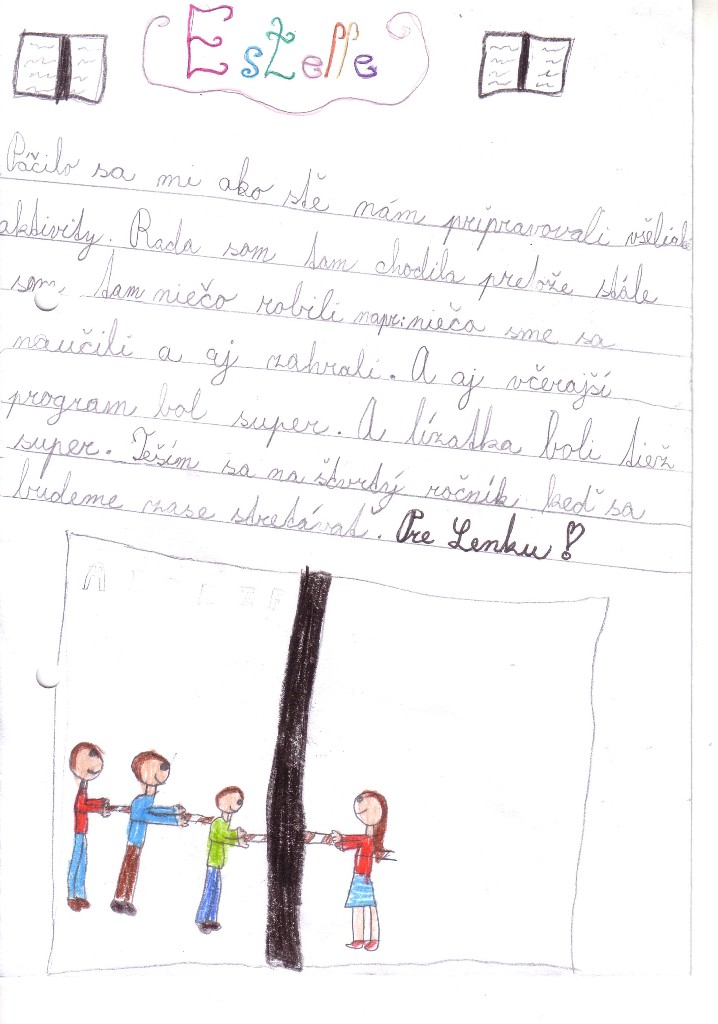 Estelle
Páčilo sa mi ako ste nám pripravovali všeliaké
aktivity. Rada som tam chodila pretože stále
som, tam niečo robili napr: niečo sme sa
naučili a aj zahrali. A aj včerajší
program bol super. A lízatka boli tiež
super. Teším sa na štvrtý ročník, keď sa
budeme zase stretávať. Pre Lenku!